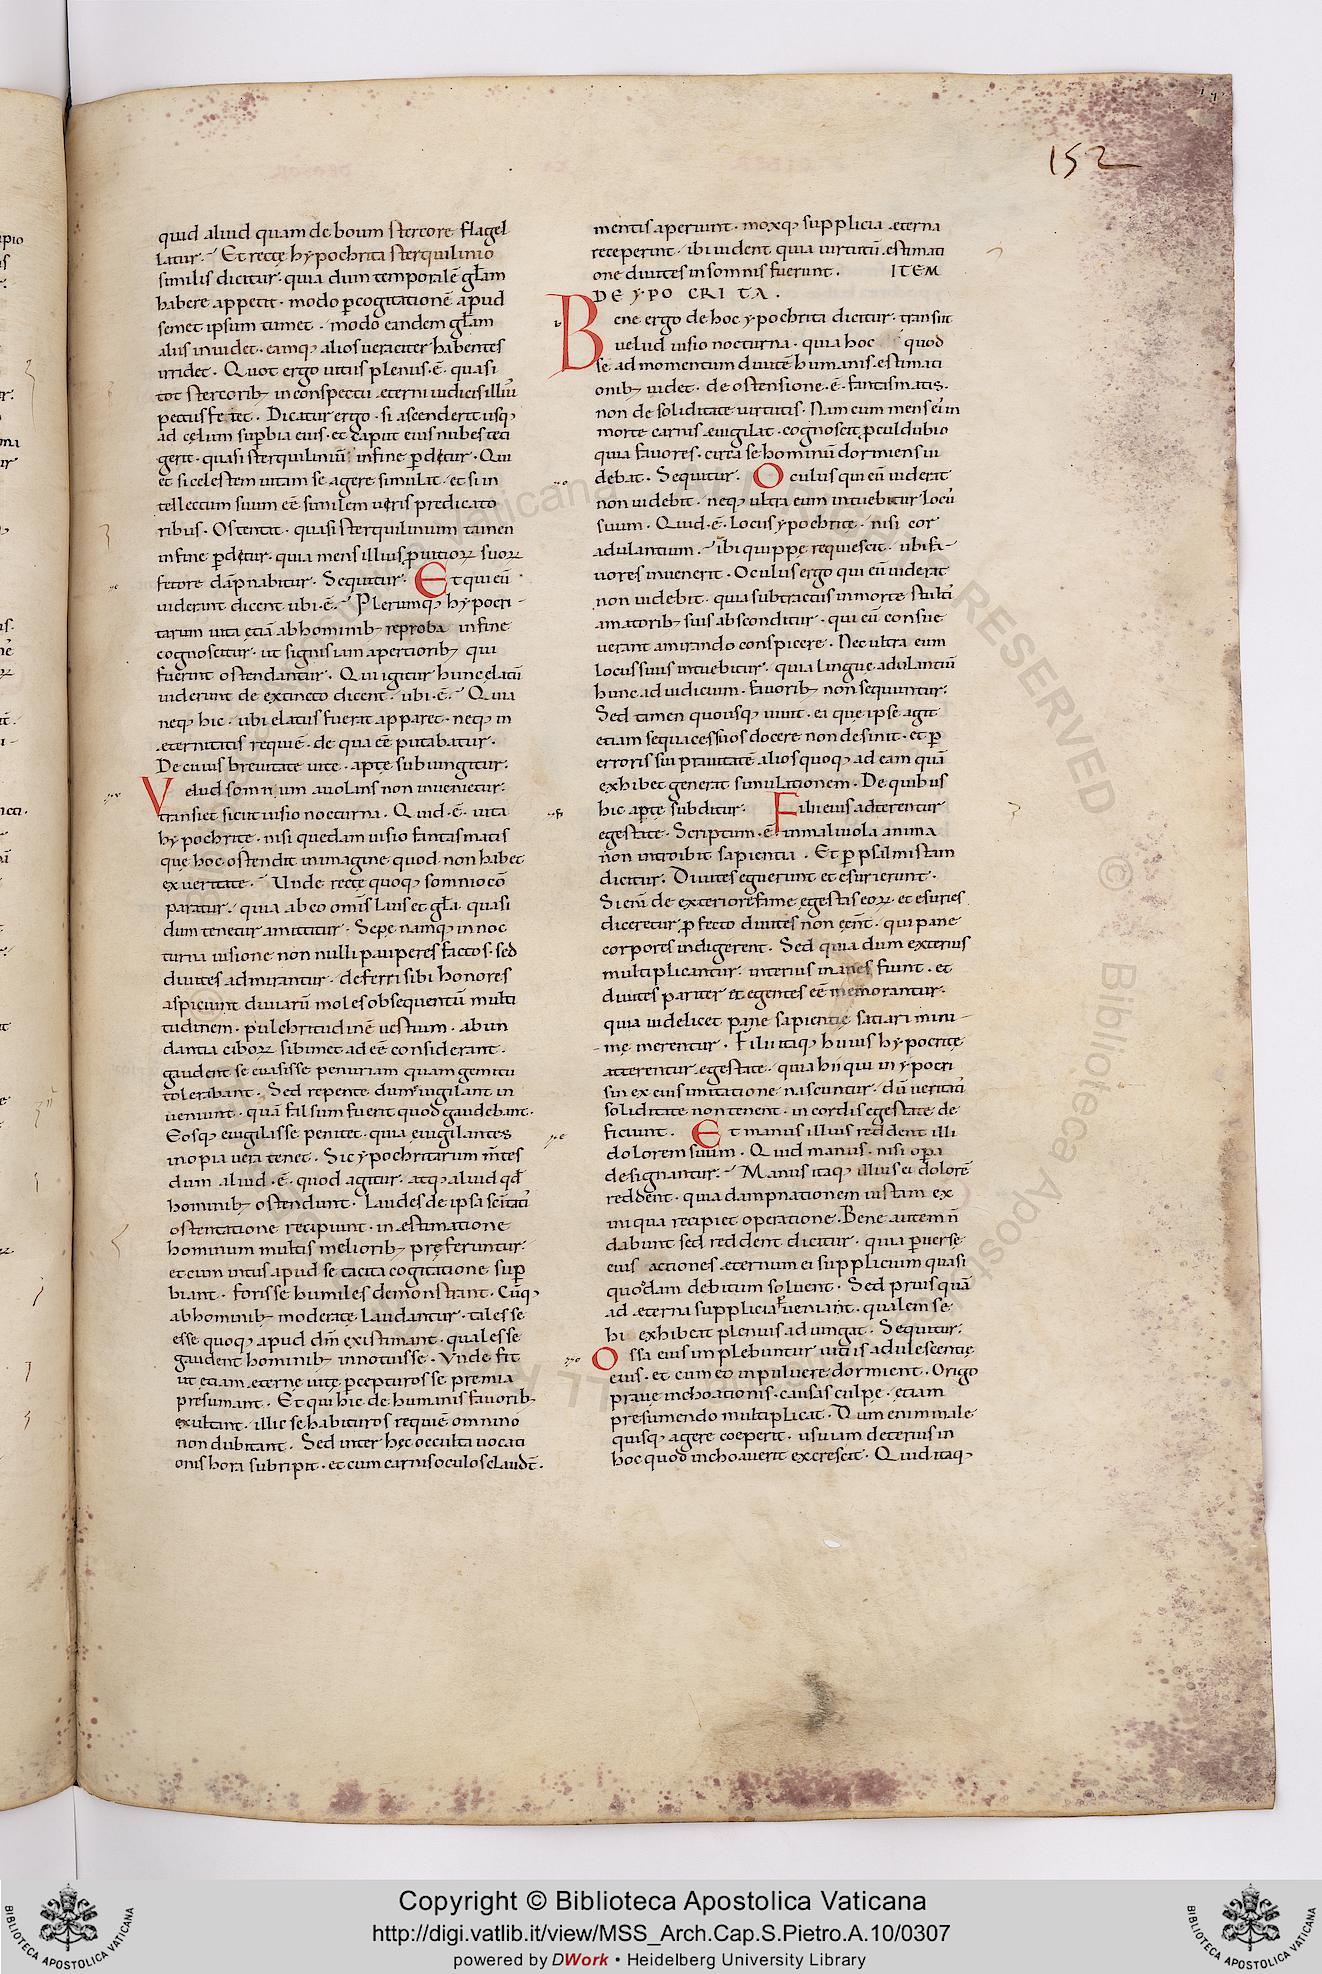 152
quid aliud quam de boum stercore flagel
latur. Et recte hypochrita sterquilinio
similis dicitur. quia dum temporalē gl̄am
habere appetit. modo p cogitationē apud
semet ipsum tumet. modo eandem gl̄am
aliis inuidet. eamq; alios ueraciter habentes
irridet. Quot ergo uitiis plenus .ē. quasi
tot stercorib; in conspectu ęterni iudicis illiū
pectus fetet. Dicatur ergo. si ascenderit usq;
ad cęlum supbia eius. et caput eius nubes teti
gerit. quasi sterquiliniū in fine pdetur. Qui
et si celestem uitam se agere simulat. et si in
tellectum suum eē similem ueris predicato
ribus. Ostentat. quasi sterquilinium tamen
in fine pdetur. quia mens illius p uitioꝝ suoꝝ
fetore dāpnabitur. Sequitur. Et qui eū
uiderant dicent ubi .ē. Plerumq; hypocri-
tarum uita etiā ab hominib; reproba in fine
cognoscitur. ut signis iam apertiorib; qui
fuerint ostendantur. Qui igitur hunc elatū
uiderunt de extincto dicent. ubi .ē. Quia
neq; hic. ubi elatus fuerat apparet. neq; in
ęternitatis requiē. de qua eē putabatur.
De cuius breuitate uite. apte subiungitur.
Velud somnium auolans non inuenietur.
transiet sicut uisio nocturna. Quid .ē. uita
hypochrite. nisi quedam uisio fantasmatis
quę hoc ostendit in imagine quod non habet
ex ueritate. Unde recte quoq; somnio cō
paratur. quia ab eo omīs laus et gl̄a. quasi
dum tenetur amittitur. Sepe namq; in noc
turna uisione non nulli pauperes factos. sed
diuites admirantur. deferri sibi honores
aspiciunt diuitiarū moles obsequentū multi
tudinem. pulchritudinē uestium. abun
dantia ciboꝝ sibimet adeē considerant.
gaudent se euasisse penuriam quam gemitu
tolerabant. Sed repente dum euigilant in
ueniunt. quā falsum fuerit quod gaudebant.
Eosq; euigilasse penitet. quia euigilantes
inopia uera tenet. Sic ypochritarum mtes
dum aliud .ē. quod agitur. atq; aliud qd
hominib; ostendunt. laudes de ipsa scītati
ostentatione recipiunt. in estimatione
hominum multis meliorib; preferuntur.
et cum intus apud se tacita cogitatione sup
biant. foris se humiles demonstrant. Cūq;
ab hominib; moderate laudantur. tales se
esse quoq; apud dm existimant. quales se
gaudent hominib; innotuisse. Vnde fit
ut etiam ęterne uite pcepturos se premia
presumant. Et qui hic de humanis fauorib;
exultant. illic se habituros requiē omnino
non dubitant. Sed inter hęc occulta uocati
onis hora subripit. et cum carnis oculos claudt.
mentis aperiunt. moxq; supplicia ęterna
receperint. ibi uident quia uirtutū estimati
one diuites in somnis fuerunt. ITEM
DE YPO CRI TA.
Bene ergo de hoc ypochrita dicitur. transiit
uelud uisio nocturna. quia hoc quod
se ad momentum diuitē humanis estimati
onib; uidet. de ostensione .ē. fantasmatis.
non de soliditate uirtutis. Nam cum mens ei in
morte carnis euigilat. cognoscit pculdubio
quia fauores. circa se hominū dormiens ui
debat. Sequitur. Oculus qui eū uiderat
non uidebit. neq; ultra eum intuebitur locū
suum. Quid .ē. locus ypochrite. nisi cor
adulantium. ibi quippe requiescit. ubi fa-
uores inuenerit. Oculus ergo qui eū uiderat
non uidebit. quia subtractus in morte stulti
amatorib; suis absconditur. qui eū consue
uerant amirando conspicere. Nec ultra eum
locus suus intuebitur. quia lingue adulantiū
hunc ad iudicium. fauorib; non sequuntur.
Sed tamen quousq; uiuit. ea que ipse agit
etiam sequaces suos docere non desinit. et p
erroris sui prauitatē alios quoq; ad eam quā
exhibet generat simulationem. De quibus
hic apte subditur. Filii eius adterentur
egestate. Scriptum .ē. in maliuola anima
non introibit sapientia. Et p psalmistam
dicitur. Diuites eguerunt et esurierunt.
Si enī de exteriore fame egestas eoꝝ et esuries
diceretur pfecto diuites non eēnt. qui pane
corporis indigerent. Sed quia dum exterius
multiplicantur. interius inanes fiunt. et
diuites pariter et egentes eē memorantur.
quia uidelicet pane sapientię satiari mini-
me merentur. Filii itaq; huius hypocrite
atterentur egestate. quia hii qui in ypocri
sin ex eius imitatione nascuntur. dū ueritati
soliditate non tenent. in cordis egestate de
ficiunt. Et manus illius reddent illi
dolorem suum. Quid manus. nisi opa
designantur. Manus itaq; illius ei dolorē
reddent. quia dampnationem iustam ex
iniqua recipiet operatione. Bene autem n̄
dabunt sed reddent dicitur. quia puerse
eius actiones ęternum ei supplicium quasi
quoddam debitum soluent. Sed prius quā
ad ęterna supplicia ueniant. qualem se
hi exhibeat plenius adiungat. Sequitur.
Ossa eius implebuntur uitiis adulescentię
eius. et cum eo in puluere dormient. Origo
praue inchoationis. causas culpe. etiam
presumendo multiplicat. Dum enim male
quisq; agere coeperit. usu iam deterius in
hoc quod inchoauerit excrescit. Quid itaq;
Copyright © Biblioteca Apostolica Vaticana
http://digi.vatlib.it/view/MSS_Arch.Cap.S.Pietro.A.10/0307
powered by DWork • Heidelberg University Library
BIBLIOTECA APOSTOLICA VATICANA
BIBLIOTECA APOSTOLICA VATICANA